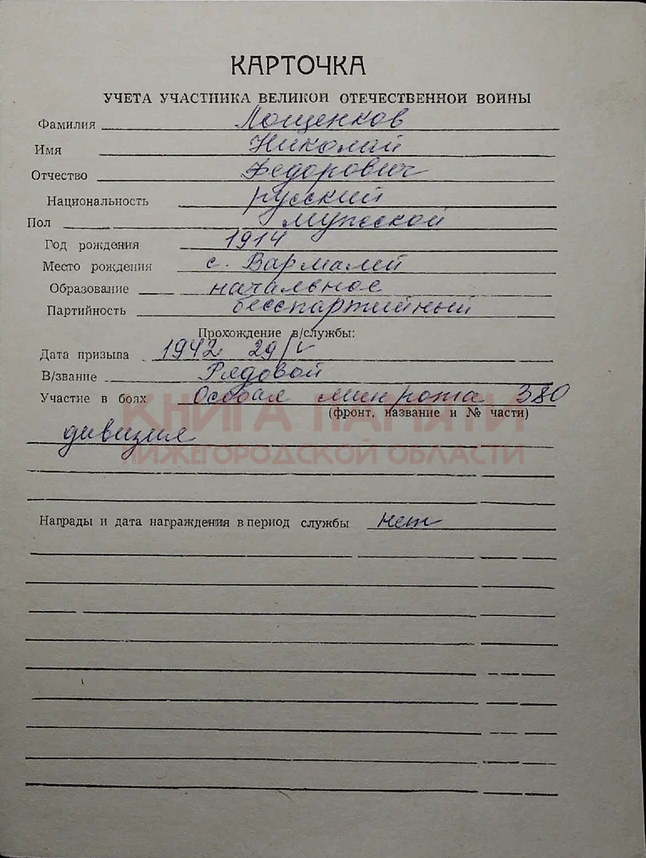 КАРТОЧКА
УЧЕТА УЧАСТНИКА ВЕЛИКОЙ ОТЕЧЕСТВЕННОЙ ВОЙНЫ
Фамилия Лощенков
Имя Николай
Отчество Федорович
Национальность русский
Пол мужской
Год рождения 1914
Место рождения с. Вармалей
Образование начальное
Партийность бесспартийный
Прохождение в/службы:
Дата призыва 1942 29/V
В/звание Рядовой
Участие в боях Особая минрота 380
(фронт, название и № части)
дивизия
КНИГА ПАМЯТИ
НИЖЕГОРОДСКОЙ ОБЛАСТИ
Награды и дата награждения в период службы нет
КНИГА ПАМЯТИ
НИЖЕГОРОДСКОЙ ОБЛАСТИ